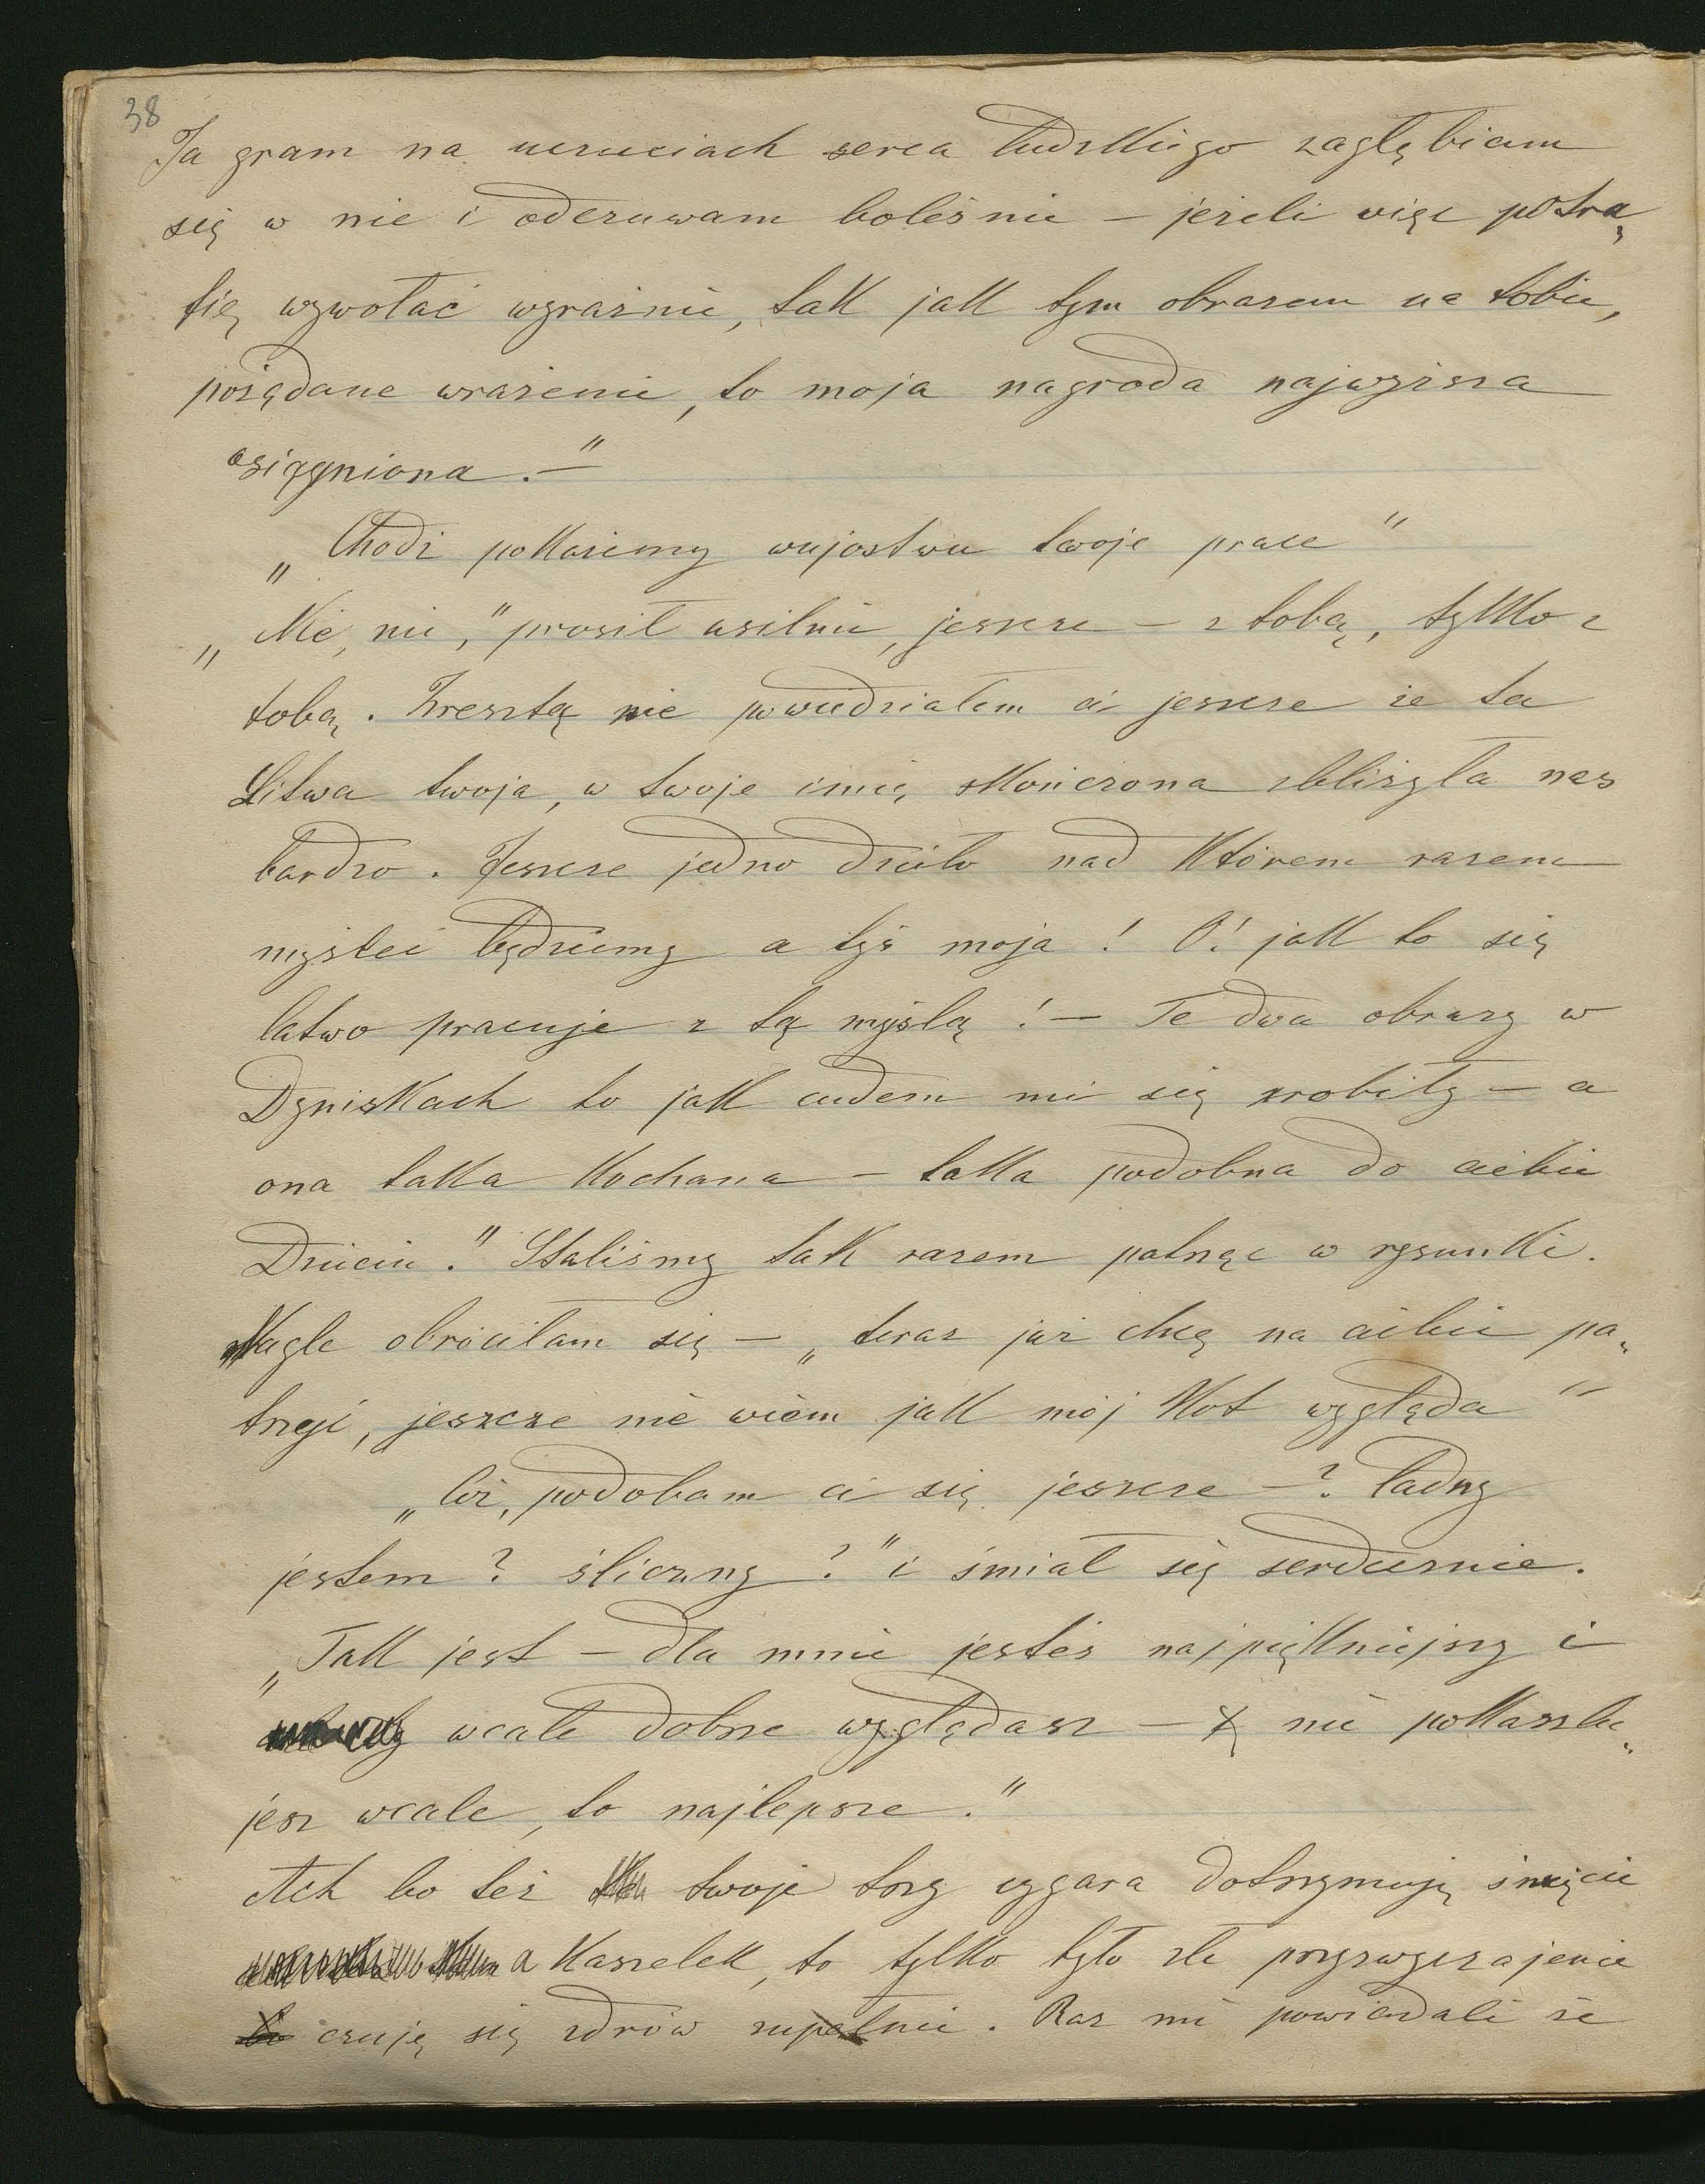 38
Ja gram na uczuciach serca ludzkiego zagłębiam
się w nie i odczuwam boleśnie – jeżeli więc potra„
fię wywołać wyraźnie, tak jak tym obrazem na tobie,
pożądane wrażenie, to moja nagroda najwyższa
osiągniona. –"
„Chodź pokażemy wujostwu twoje prace"
„Nie, nie," prosił usilnie, jeszcze – z tobą, tylko z
tobą. Zresztą nie powiedziałem ci jeszcze że ta
Litwa twoja, w twoje imię skończona zbliżyła nas
bardzo. Jeszcze jedno dzieło nad którem razem
myśleć będziemy a tyś moja! O! jak to się
łatwo pracuje z tą myślą! – Te dwa obrazy w
Dyniskach to jak cudem mi się zrobiły – a
ona taka kochana – taka podobna do ciebie
Dziecin." Staliśmy tak razem patrząc w rysunki.
Nagle obróciłam się – „teraz już chcę na ciebie pa„
trzeć, jeszcze nie wiem jak mój Kot wygląda"
„Cóż, podobam ci się jeszcze –? ładny
jestem? śliczny?" i śmiał się serdecznie.
„Tak jest – dla mnie jesteś najpiękniejszy i
wcale dobrze wyglądasz – nie pokaszlu„
jesz wcale, to najlepsze."
Ach bo też twoje trzy cygara dotrzymuję święcie
a kaszelek, to tylko było złe przyzwyczajenie
czuję się zdrów zupełnie. Raz mi powiadali że